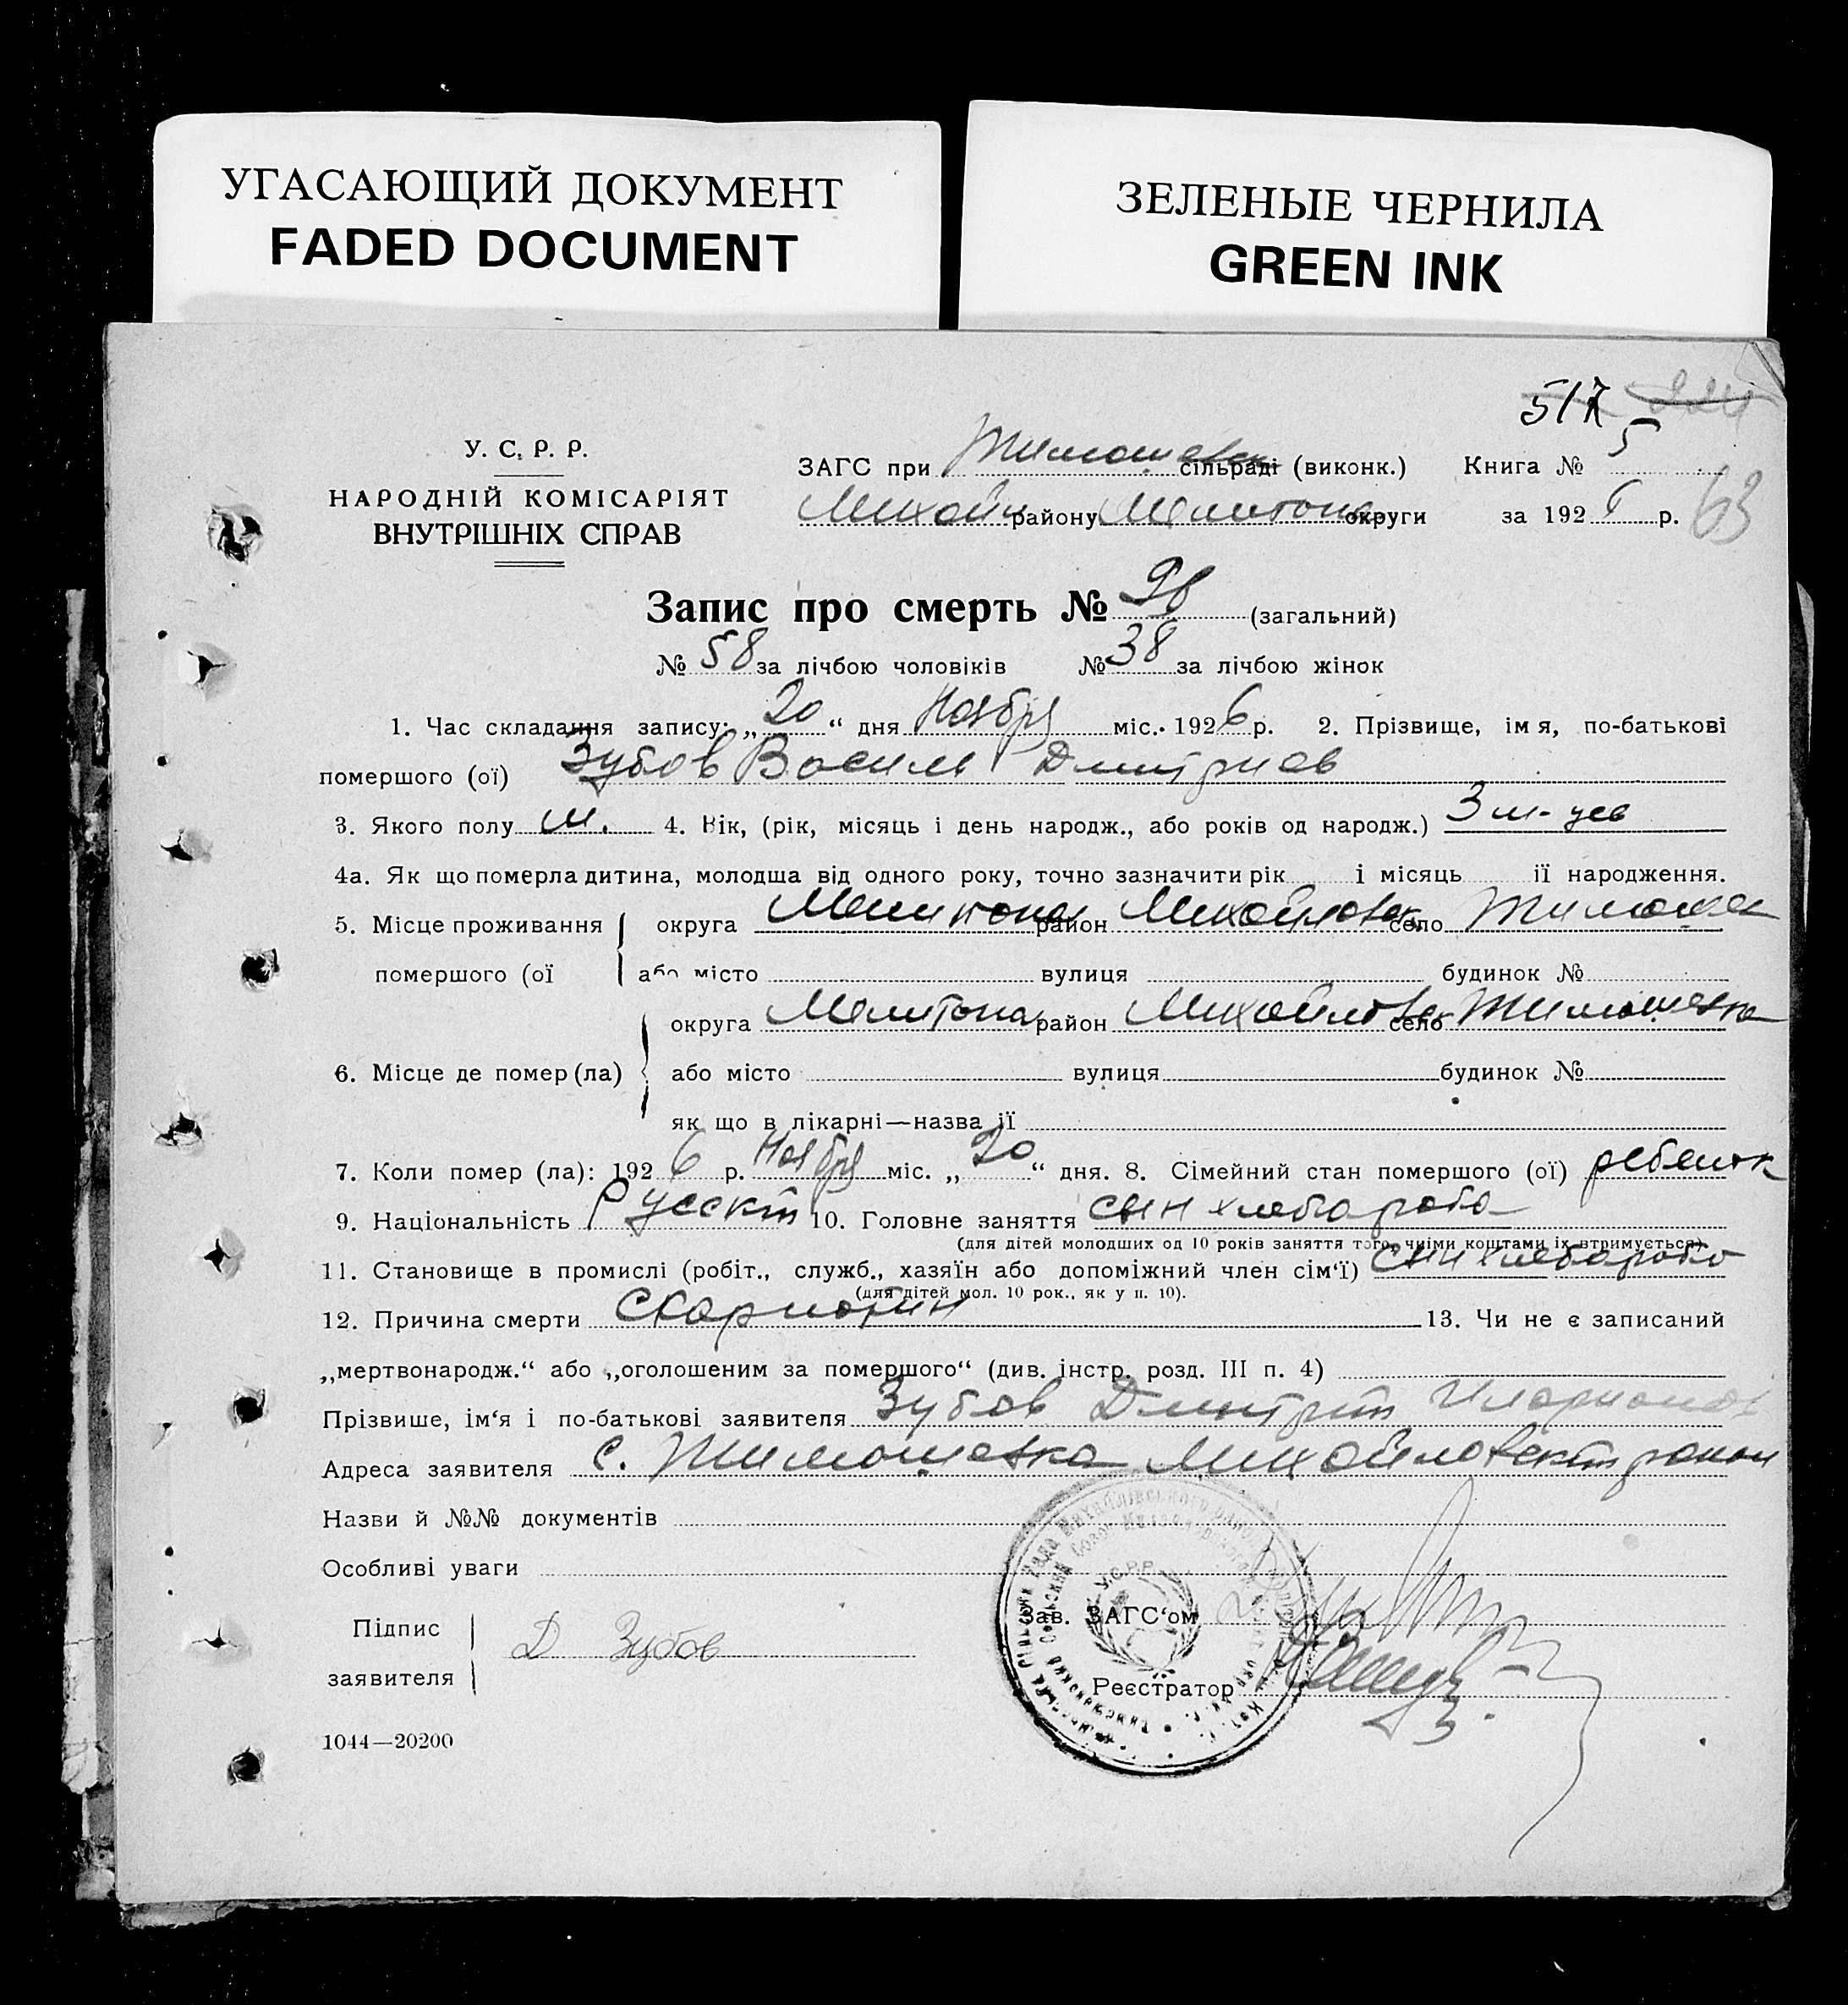 УГАСАЮЩИЙ ДОКУМЕНТ
FADED DOCUMENT
ЗЕЛЕНЫЕ ЧЕРНИЛА
GREEN INK
517
У. С. Р. Р.
НАРОДНІЙ КОМІСАРІЯТ
ВНУТРІШНІХ СПРАВ
ЗАГС при Тимошевск сільраді (виконк.) Книга № 5
Михайл району Мелитопол округи за 1926 р. 63
Запис про смерть № 96 (загальний)
№ 58 за лічбою чоловіків № 38 за лічбою жінок
1. Час складання запису: „20“ дня Ноября міс. 1926 р. 2. Прізвище, імя, по-батькові
помершого (ої) Зубов Василь Дмитриев
3. Якого полу м. 4. Вік, (рік, місяць і день народж., або років од народж.) 3 м-цев
4а. Як що померла дитина, молодша від одного року, точно зазначити рік і місяць її народження.
5. Місце проживання округа Мелитопол район Михайловск село Тимошев
помершого (ої або місто вулиця будинок №
округа Мелитопол район Михайловск село Тимошевка
6. Місце де помер (ла) або місто вулиця будинок №
як що в лікарні—назва її
7. Коли помер (ла): 1926 р. Ноября міс. „20“ дня. 8. Сімейний стан помершого (ої) ребенок
9. Національність Русский 10. Головне заняття сын хлебороба
(для дітей молодших од 10 років заняття того, чиїми коштами їх втримується)
11. Становище в промислі (робіт., служб., хазяїн або допоміжний член сім‘ї) сын хлебороба
(для дітей мол. 10 рок., як у п. 10).
12. Причина смерти Скарлотин 13. Чи не є записаний
„мертвонародж.“ або „оголошеним за помершого“ (див. інстр. розд. III п. 4)
Прізвише, ім‘я і по-батькові заявителя Зубов Дмитрий Иларионов
Адреса заявителя с. Тимошевка Михайловский район
Назви й №№ документів
Особливі уваги
Підпис
заявителя Д Зубов
Зав. ЗАГС‘ом
Реєстратор
У.С.Р.Р.
1044—20200